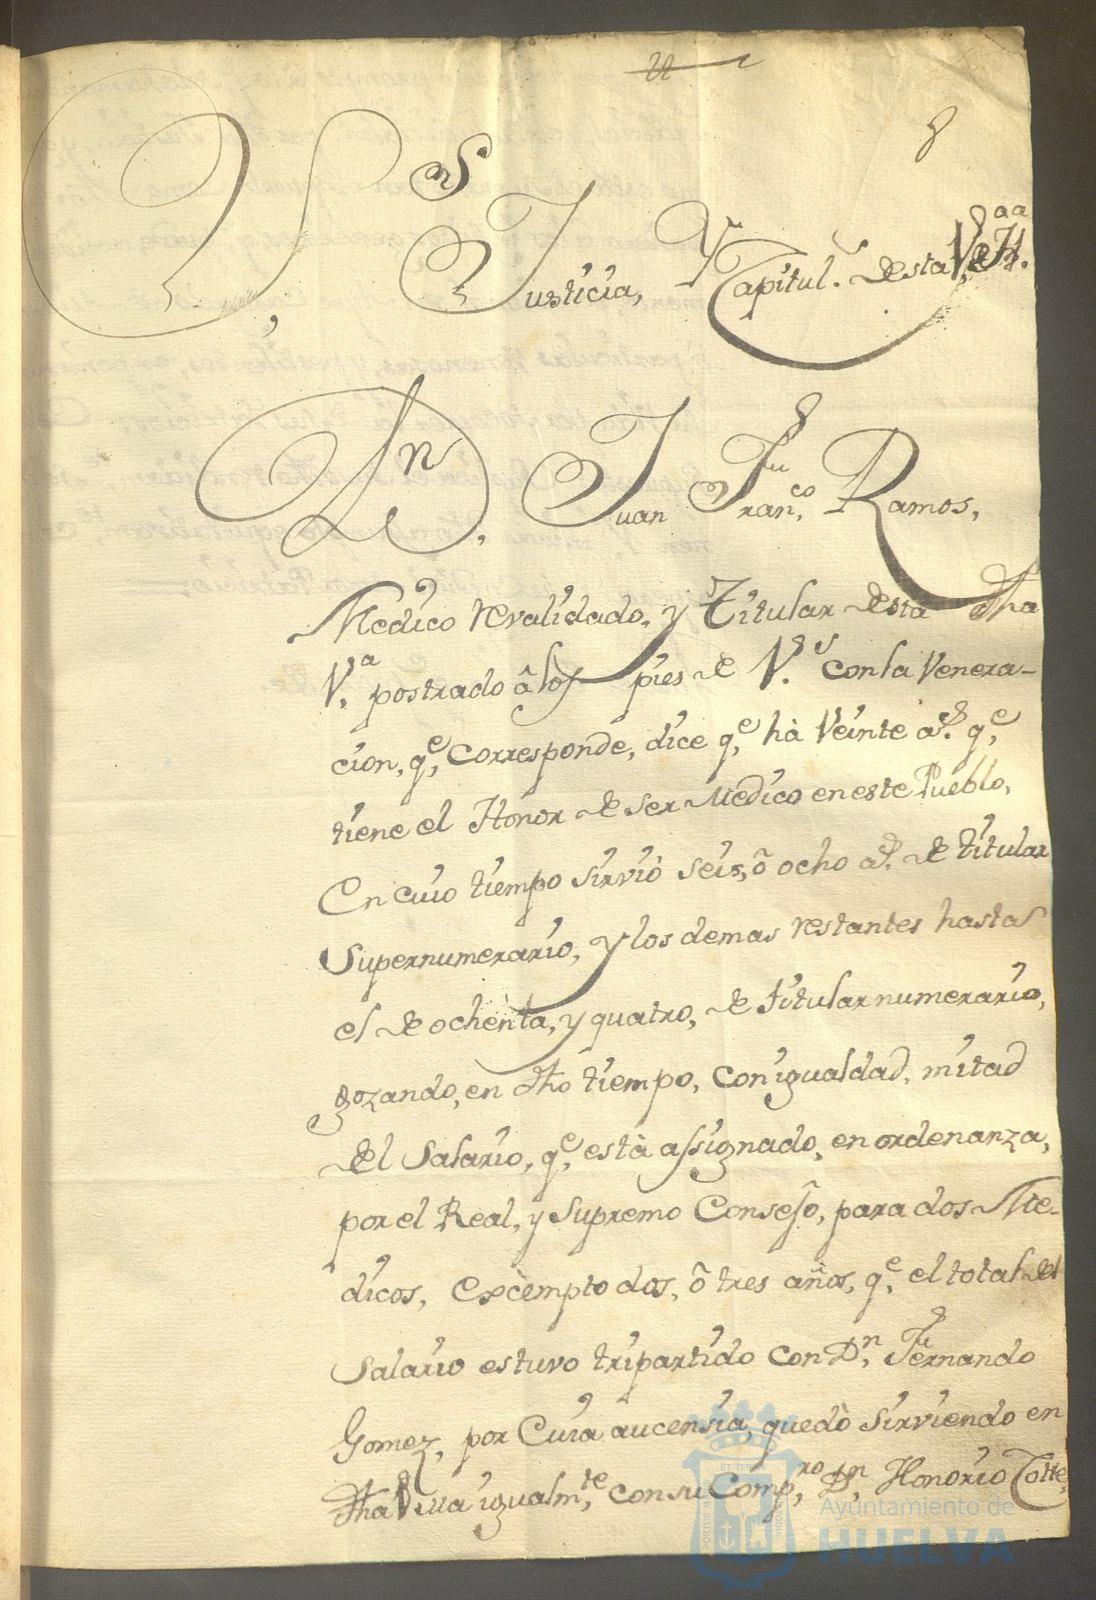 8
S.ⁿ Justicia, y Capitul.ˢ desta V.ª de H.
D.ⁿ Juan Fran.ᶜᵒ Ramos,
Medico revalidado, y Titular desta dha
V.ª postrado â los pies de V.S.ˢ con la Venera-
cion, q.ᵉ corresponde, dice q.ᵉ hà Veinte a.ˢ q.ᵉ
tiene el Honor de ser Medico en este Pueblo,
En cuio tiempo sirviò seis, ô ocho a.ˢ de titular
Supernumerario, y los demas restantes hasta
el de ochenta, y quatro, de titular numerario,
gozando, en dho tiempo, con igualdad, mitad
del Salario, q.ᵉ està assignado, en ordenanza,
por el Real, y Supremo Consejo, para dos Me-
dicos, excèmpto dos, ô tres años, q.ᵉ el total del
Salario estuvo tripartido con D.ⁿ Fernando
Gomez, por Cuia aucensia, quedò Sirviendo en
dha Villa igualm.ᵗᵉ con su Comp.ʳᵒ D.ⁿ Honorio
Ayuntamiento de
HUELVA